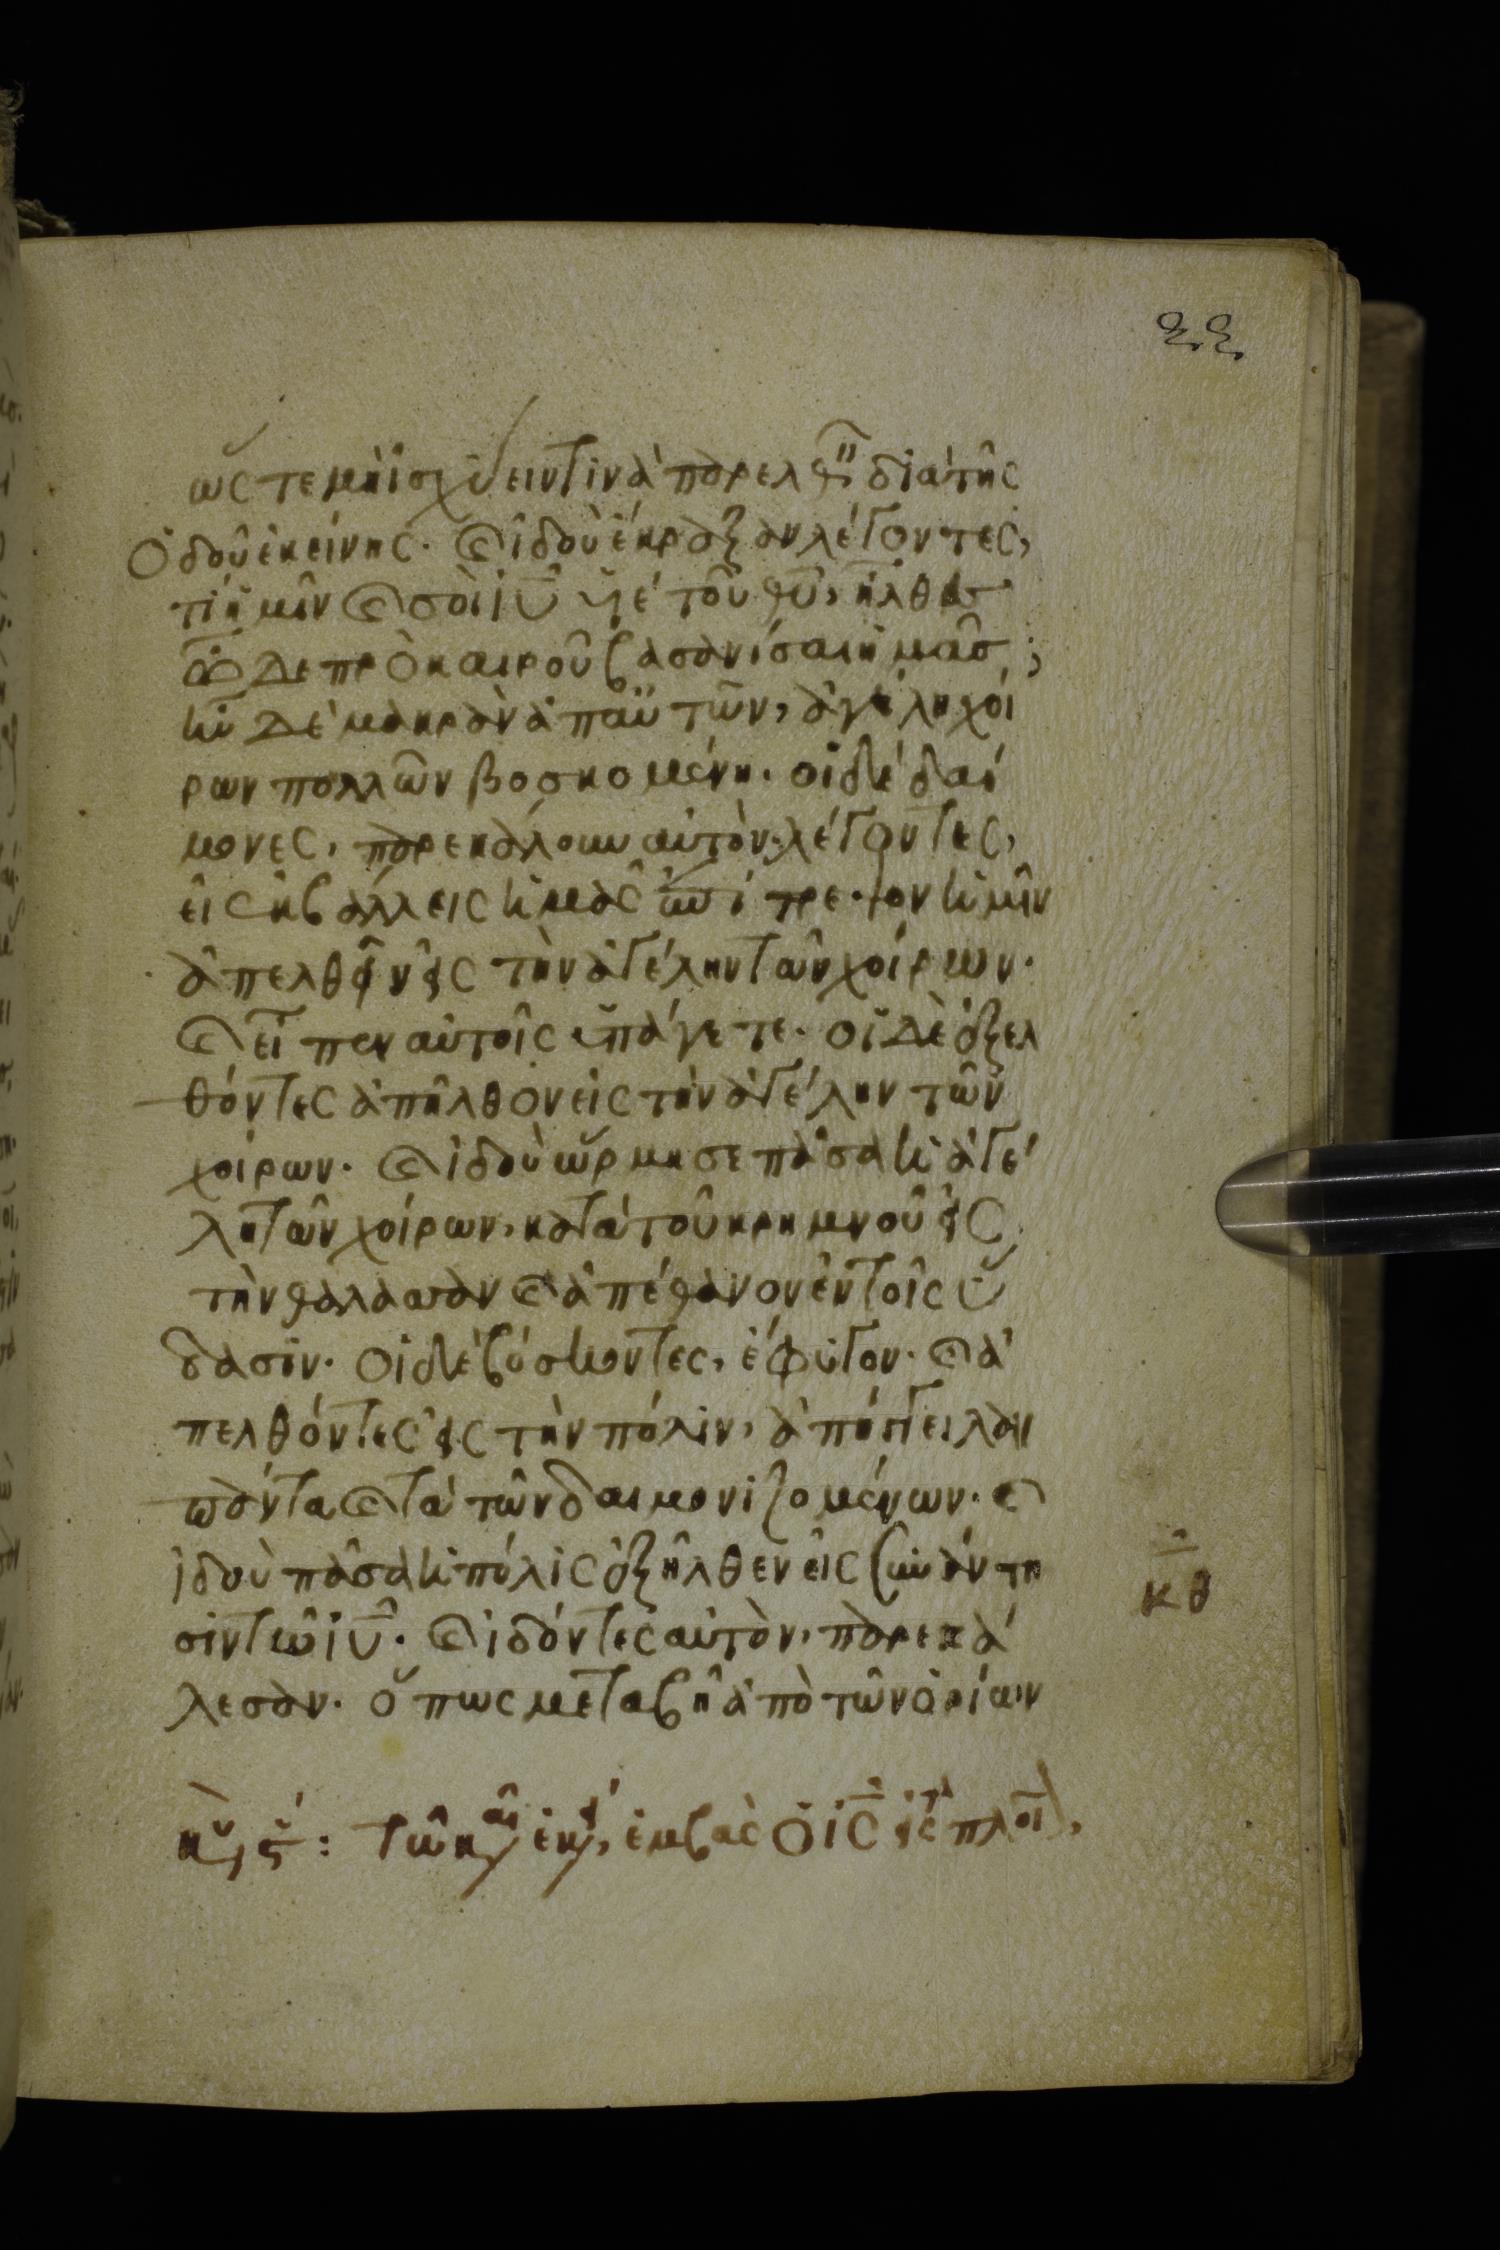 22
ὥστε μὴ ἰσχύειν τινὰ παρελθεῖν διὰ τῆς
ὁδοῦ ἐκείνης. καὶ ἰδοὺ ἔκραξαν λέγοντες,
τί ἡμῖν καὶ σοὶ ἰῦ υἱὲ τοῦ θῦ, ἦλθες
ὧδε πρὸ καιροῦ βασανίσαι ἡμᾶς;
ἦν δὲ μακρὰν ἀπ' αὐτῶν, ἀγέλη χοί
ρων πολλῶν βοσκομένη. οἱ δὲ δαί
μονες, παρεκάλουν αὐτὸν λέγοντες,
εἰ ἐκβάλλεις ἡμᾶς ἐπίτρεψον ἡμῖν
ἀπελθεῖν εἰς τὴν ἀγέλην τῶν χοίρων.
καὶ εἶπεν αὐτοῖς ὑπάγετε. οἱ δὲ ἐξελ
θόντες ἀπῆλθον εἰς τὴν ἀγέλην τῶν
χοίρων. καὶ ἰδοὺ ὥρμησε πᾶσα ἡ ἀγέ
λη τῶν χοίρων, κατὰ τοῦ κρημνοῦ εἰς
τὴν θάλασσαν καὶ ἀπέθανον ἐν τοῖς ὕ
δασιν. οἱ δὲ βόσκοντες, ἔφυγον. καὶ ἀ
πελθόντες εἰς τὴν πόλιν, ἀπήγγειλαν
πάντα καὶ τὰ τῶν δαιμονιζομένων. καὶ
ἰδοὺ πᾶσα ἡ πόλις ἐξῆλθεν εἰς συνάντη
σιν τῶ ἰῦ. καὶ ἰδόντες αὐτὸν, παρεκά
λεσαν. ὅπως μεταβῆ ἀπὸ τῶν ὁρίων
κθ
τῶ καιρῶ ἐκείνω, ἐμβὰς ὁ ἰς εἰς πλοῖ,